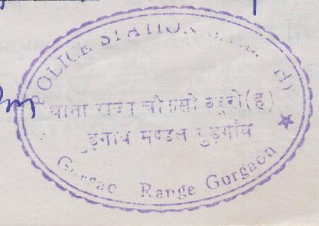 POLICE STATION
थाना राज्य चौकसी ब्यूरो(ह)
गुड़गांव मण्डल गुड़गाँव
Range Gurgaon